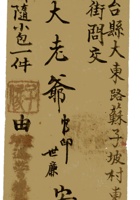 台縣大東路蘇子坡村東
街問交
大老爺
世廉
隨小包一件
由